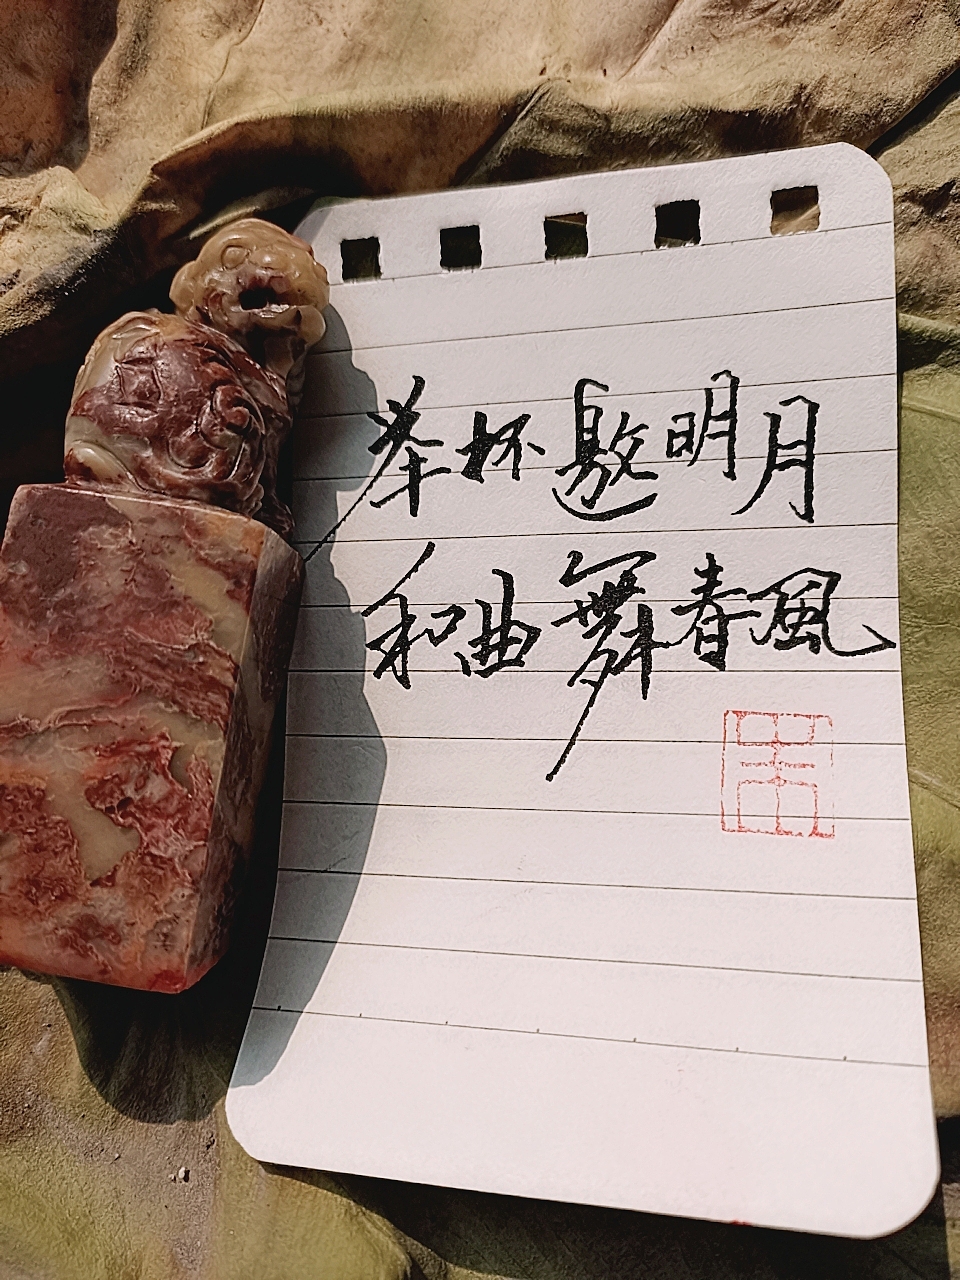 举杯邀明月
和曲舞春風